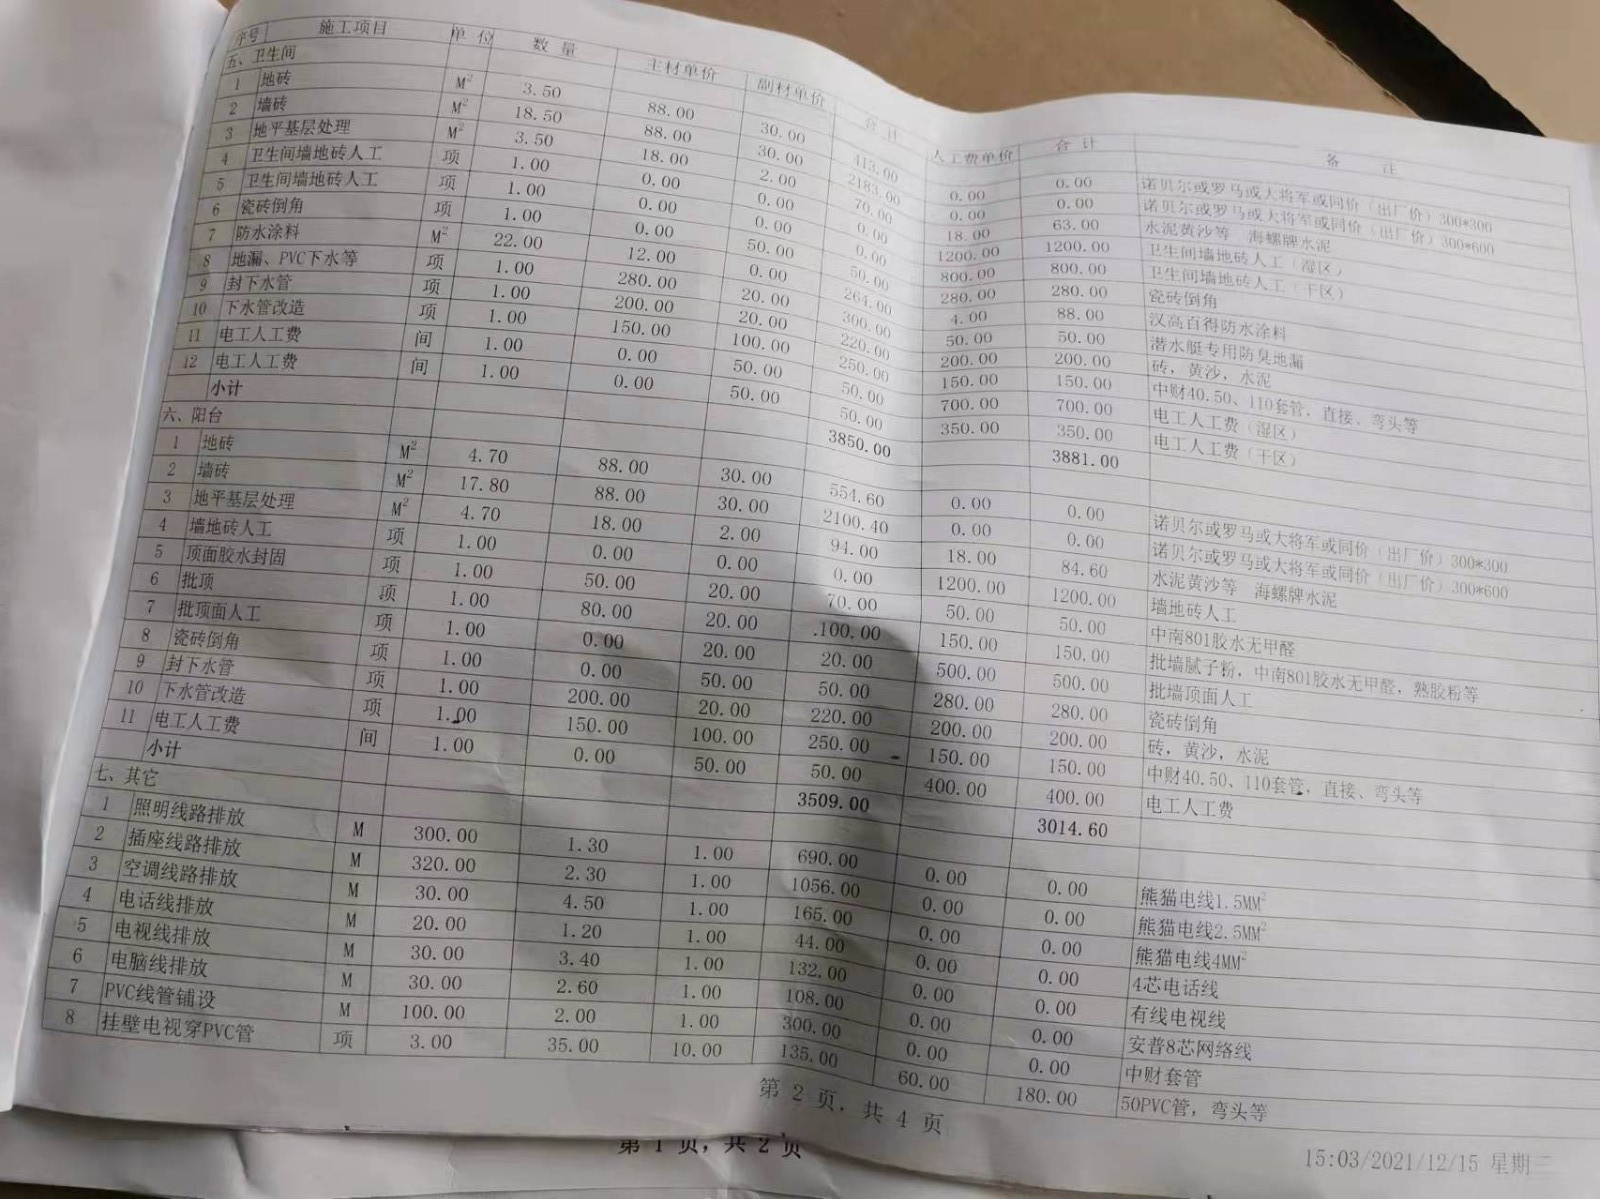 序号 施工项目 单位 数量 主材单价 副材单价 合计 人工费单价 合计 备注
五、卫生间
1 地砖 M² 3.50 88.00 30.00 413.00 0.00 0.00 诺贝尔或罗马或大将军或同价（出厂价）300*300
2 墙砖 M² 18.50 88.00 30.00 2183.00 0.00 0.00 诺贝尔或罗马或大将军或同价（出厂价）300*600
3 地平基层处理 M² 3.50 18.00 2.00 70.00 18.00 63.00 水泥黄沙等 海螺牌水泥
4 卫生间墙地砖人工 项 1.00 0.00 0.00 0.00 1200.00 1200.00 卫生间墙地砖人工（湿区）
5 卫生间墙地砖人工 项 1.00 0.00 0.00 0.00 800.00 800.00 卫生间墙地砖人工（干区）
6 瓷砖倒角 项 1.00 0.00 50.00 50.00 280.00 280.00 瓷砖倒角
7 防水涂料 M² 22.00 12.00 0.00 264.00 4.00 88.00 汉高百得防水涂料
8 地漏、PVC下水等 项 1.00 280.00 20.00 300.00 50.00 50.00 潜水艇专用防臭地漏
9 封下水管 项 1.00 200.00 20.00 220.00 200.00 200.00 砖，黄沙，水泥
10 下水管改造 项 1.00 150.00 100.00 250.00 150.00 150.00 中财40.50、110套管，直接、弯头等
11 电工人工费 间 1.00 0.00 50.00 50.00 700.00 700.00 电工人工费（湿区）
12 电工人工费 间 1.00 0.00 50.00 50.00 350.00 350.00 电工人工费（干区）
小计 3850.00 3881.00
六、阳台
1 地砖 M² 4.70 88.00 30.00 554.60 0.00 0.00 诺贝尔或罗马或大将军或同价（出厂价）300*300
2 墙砖 M² 17.80 88.00 30.00 2100.40 0.00 0.00 诺贝尔或罗马或大将军或同价（出厂价）300*600
3 地平基层处理 M² 4.70 18.00 2.00 94.00 18.00 84.60 水泥黄沙等 海螺牌水泥
4 墙地砖人工 项 1.00 0.00 0.00 0.00 1200.00 1200.00 墙地砖人工
5 顶面胶水封固 项 1.00 50.00 20.00 70.00 50.00 50.00 中南801胶水无甲醛
6 批顶 项 1.00 80.00 20.00 100.00 150.00 150.00 批墙腻子粉，中南801胶水无甲醛，熟胶粉等
7 批顶面人工 项 1.00 0.00 20.00 20.00 500.00 500.00 批墙顶面人工
8 瓷砖倒角 项 1.00 0.00 50.00 50.00 280.00 280.00 瓷砖倒角
9 封下水管 项 1.00 200.00 20.00 220.00 200.00 200.00 砖，黄沙，水泥
10 下水管改造 项 1.00 150.00 100.00 250.00 150.00 150.00 中财40.50、110套管，直接、弯头等
11 电工人工费 间 1.00 0.00 50.00 50.00 400.00 400.00 电工人工费
小计 3509.00 3014.60
七、其它
1 照明线路排放 M 300.00 1.30 1.00 690.00 0.00 0.00 熊猫电线1.5MM²
2 插座线路排放 M 320.00 2.30 1.00 1056.00 0.00 0.00 熊猫电线2.5MM²
3 空调线路排放 M 30.00 4.50 1.00 165.00 0.00 0.00 熊猫电线4MM²
4 电话线排放 M 20.00 1.20 1.00 44.00 0.00 0.00 4芯电话线
5 电视线排放 M 30.00 3.40 1.00 132.00 0.00 0.00 有线电视线
6 电脑线排放 M 30.00 2.60 1.00 108.00 0.00 0.00 安普8芯网络线
7 PVC线管铺设 M 100.00 2.00 1.00 300.00 0.00 0.00 中财套管
8 挂壁电视穿PVC管 项 3.00 35.00 10.00 135.00 60.00 180.00 50PVC管，弯头等
第 2 页，共 4 页
第 1 页，共 2 页
15:03/2021/12/15 星期三